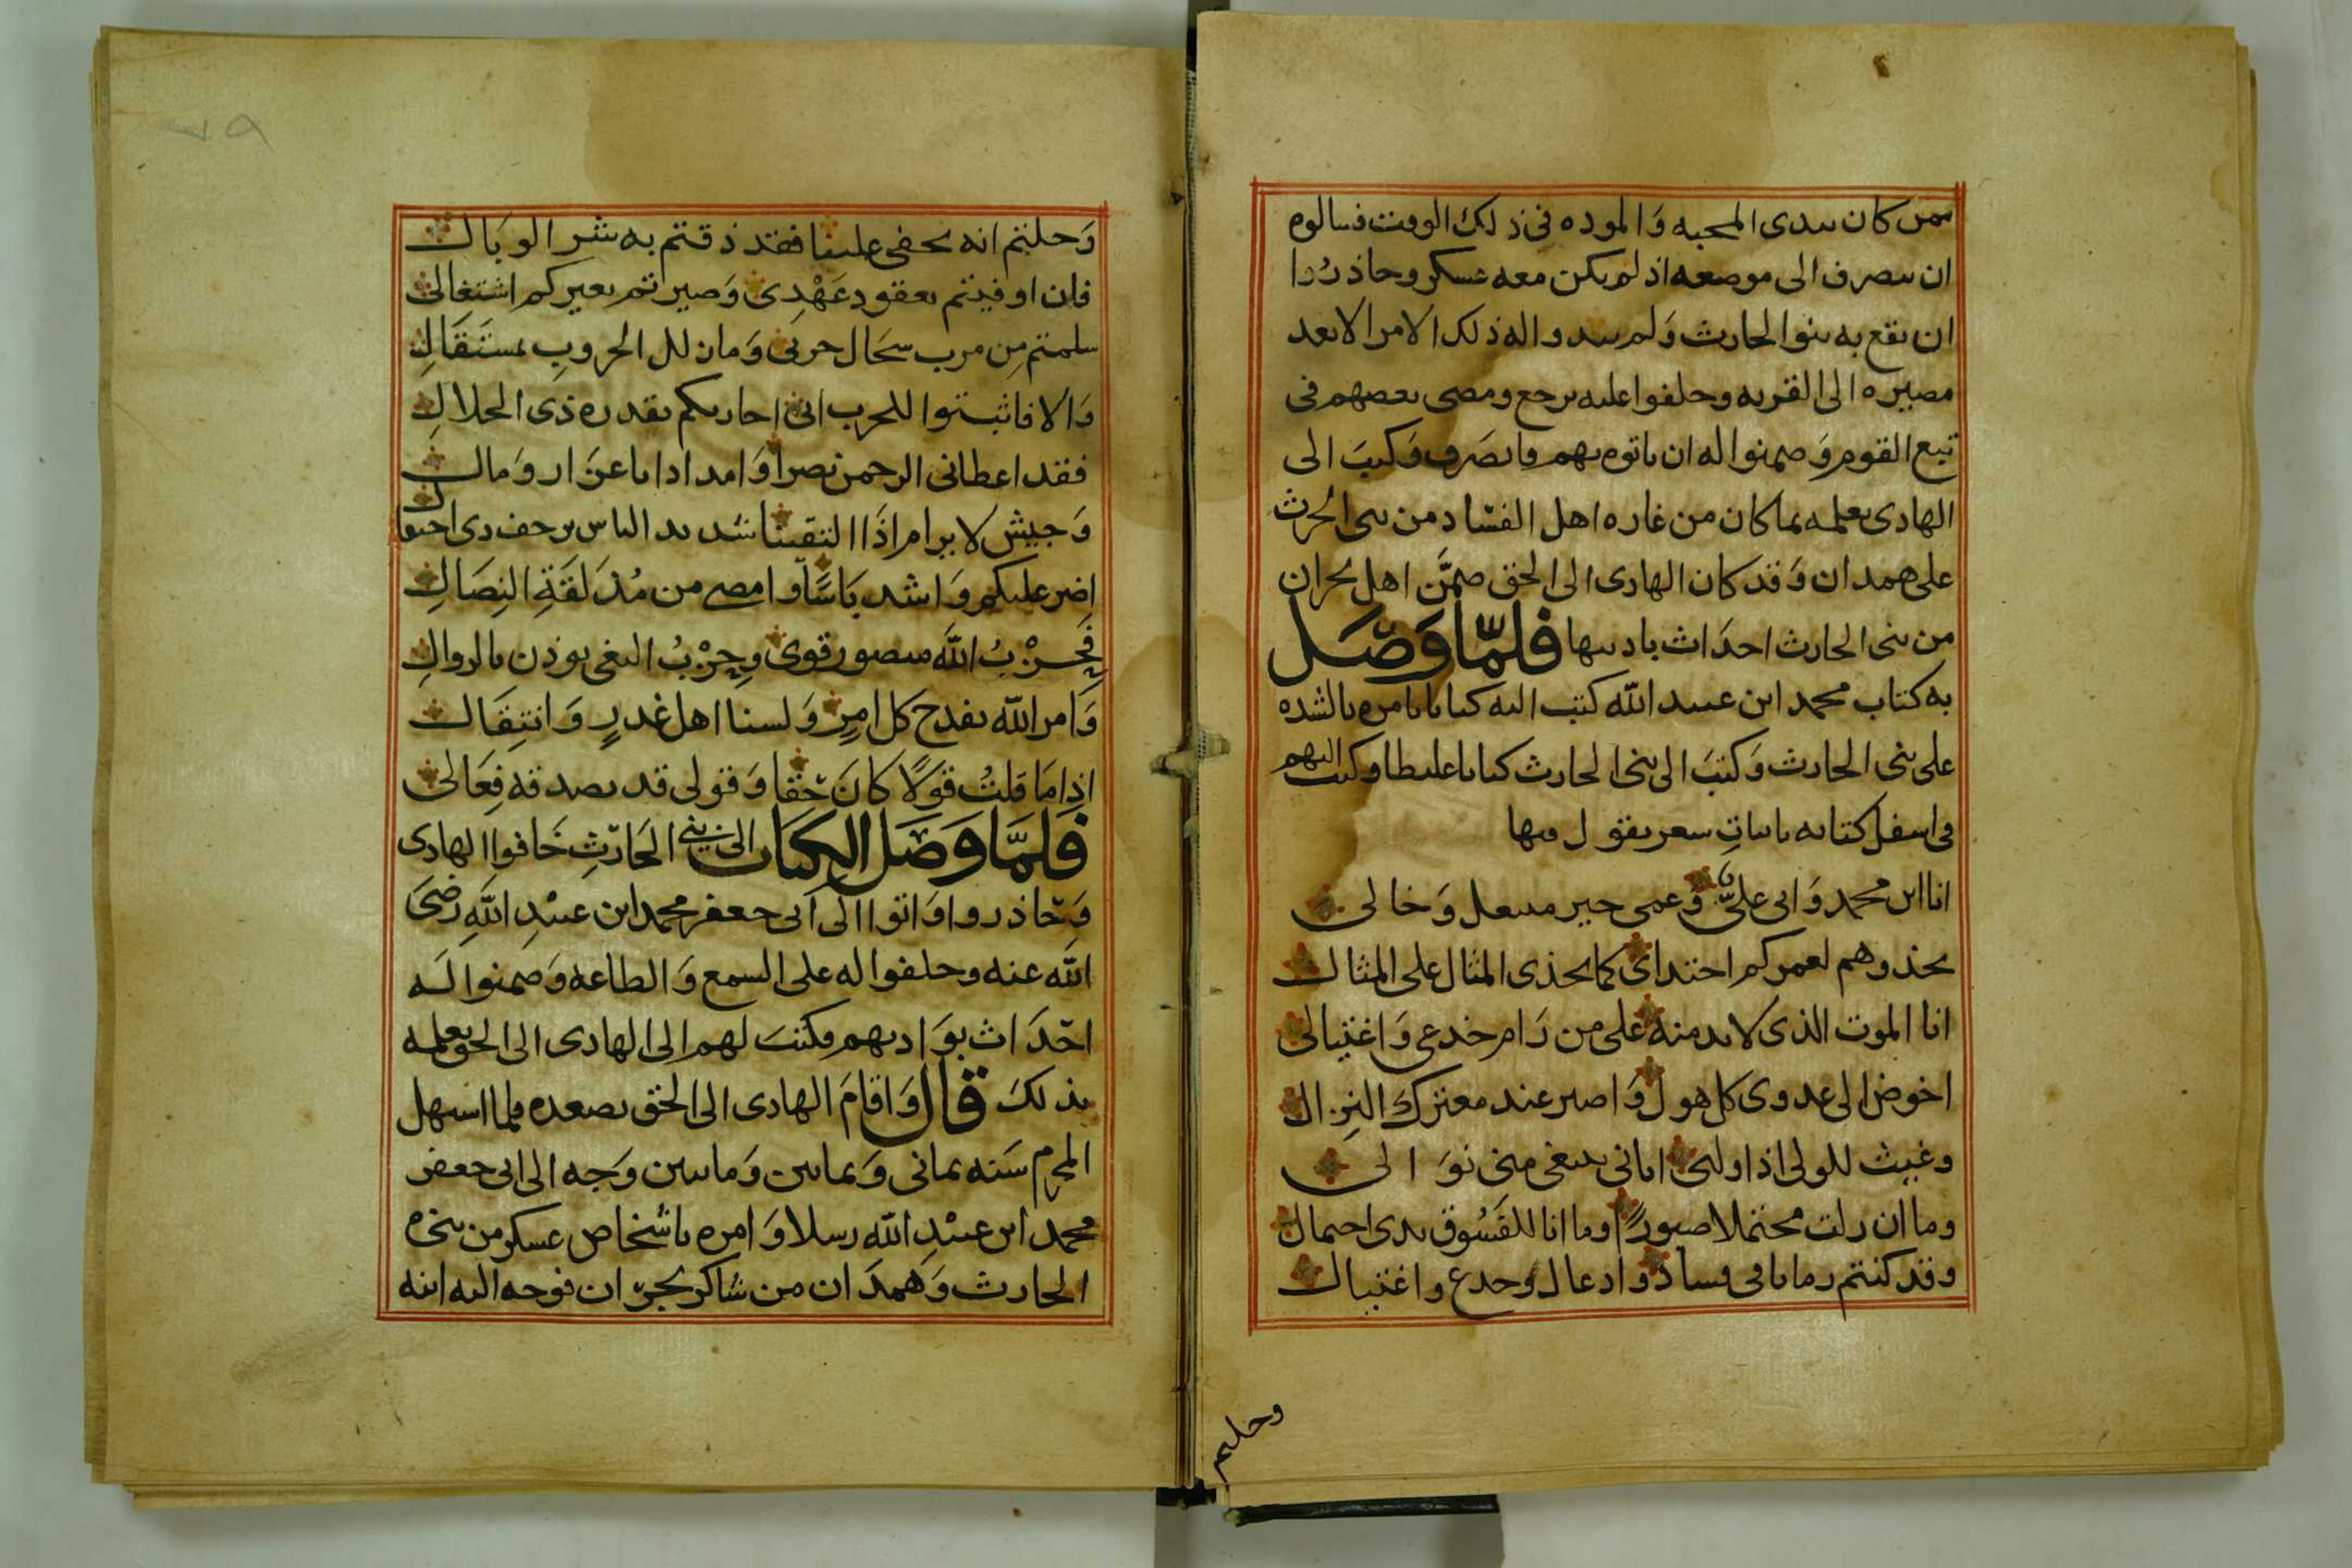 ممن كان يبدى المحبه وَالموده فى ذلك الوقت فسالوه
ان ينصرف الى موضعه اذ لم يكن معه عسكر وحاذرُوا
ان يقع به بنوا الحارث وَلم يبدوا له ذلك الامر الا بعد
مصيره الى القريه وحلفوا عليه يرجع ومضى بعضهم فى
تبع القوم وَضمنوا له ان ياتوه بهم فانصَرف وَكتبَ الى
الهادى يعلمه بما كان من غاره اهل الفساد من بنى الحرث
على همدان وَقد كان الهادى الى الحق ضمَّن اهل نجران
من بنى الحارث احدَاث باديتها فلمّا وَصَل
به كتاب محمد ابن عبيد الله كتب اليه كتابا يامره بالشده
على بنى الحارث وَكتبَ الى بنى الحارث كتابا غليظا وكتب اليهم
فى اسفل كتابه بابياتِ شعر يقول فيها
انا ابن محمد وَابى علىٌّ وَعمى خير منتعل وَخالى
بحذوهم لعمركم احتداى كما يحذى المثال على المثال
انا الموت الذى لابد منه على من رَام خدعى وَاغتيالى
اخوض الى عدوى كل هول وَاصبر عند معترك النِزال
وغيث للولى اذا ولتى اتانى يبتغى منى نوَالى
وما ان زلت محتملا صبورًا وما انا للفسُوق بذى احتمال
وقد كنتم زمانا فى فساد وادغال وخدع واغتيال
وحلتم
وَخلتم انه يخفى علينا فقد ذقتم به شر الوبَال
فان اوفيتم بعقود عَهْدِى وَصيرتم بغيركم اشتغالى
سلمتم مِن مرب سجَال حربى وَمان لل الحروبِ بمستَقَالِ
وَالا فاثبتوا للحرب انى احاربكم بقدره ذى الجلالِ
فقد اعطانى الرحمن نصرا وَامدادا باعزَاز وَمال
وَجيش لا يرام اذَا التقينا شديد الباس يزحف ذى احتوال
اضر عليكم وَاشد بَاسًا وامضى من مُذَلقَةِ النِصَالِ
فَحِزْبُ اللَه منصور قوى وحِزْبُ البغى يوذن بالزوالِ
وَامر الله يفدح كل امرٍ وَلسنا اهل غدرٍ وَانتِقَال
اذا مَا قلتُ قوَلًا كانَ حَقا وَقولى قد يصدقه فِعَالى
فَلمَّا وَصَل الكتاب الى بني الحَارثِ خَافوا الهادى
وَحَاذروا وَاتوا الى اَبى جعفر محمد ابن عبَيْدِ اللَهِ رضىَ
الله عنه وحلفوا له على السمع وَالطاعه وَضمنوا لَه
احدَاث بوَاديهم فكتب لهم الى الهادى الى الحق يعلمه
بذلك قال وَاقامَ الهادى الى الحق بصعده فلما استهل
المحرم سَنه ثمانى وَثمانين وَماتين وَجه الى ابى جعفر
محمد ابن عبيْدِ الله رسلا وَامره باشخاص عسكر من بنى
الحارث وَهمدَان من شاكر نجرَان فوجه اليه ابنه